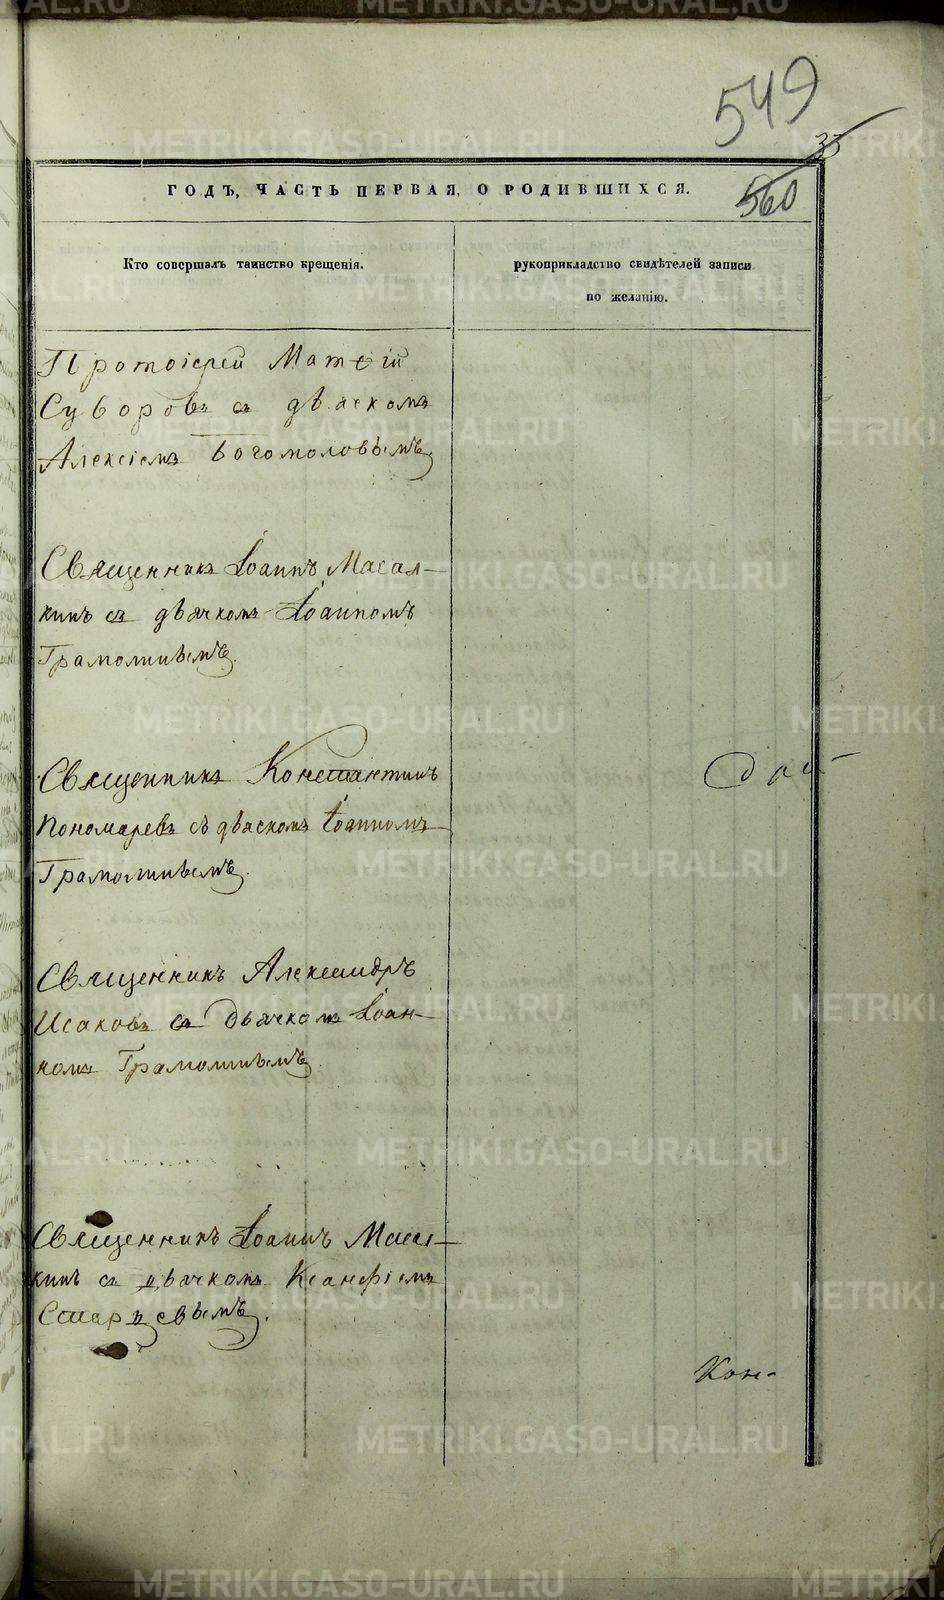 549
33
560
ГОДЪ, ЧАСТЬ ПЕРВАЯ, О РОДИВШИХСЯ.
Кто совершалъ таинство крещенія.
рукоприкладство свидѣтелей записи
по желанію.
Протоіерей Матѳій
Суворовъ съ дьячкомъ
Алексіемъ Богомоловымъ
Священникъ Іоаннъ Масал-
кинъ съ дьячкомъ Іоанномъ
Грамолинымъ.
Священникъ Константинъ
Пономаревъ съ дьячкомъ Іоанномъ
Грамолинымъ.
Священникъ Александръ
Исаковъ съ дьячкомъ Іоан-
номъ
Священникъ Іоаннъ Масал-
кинъ съ дьячкомъ Ксанфіемъ
Старцевымъ.
Кон-
METRIKI.GASO-URAL.RU